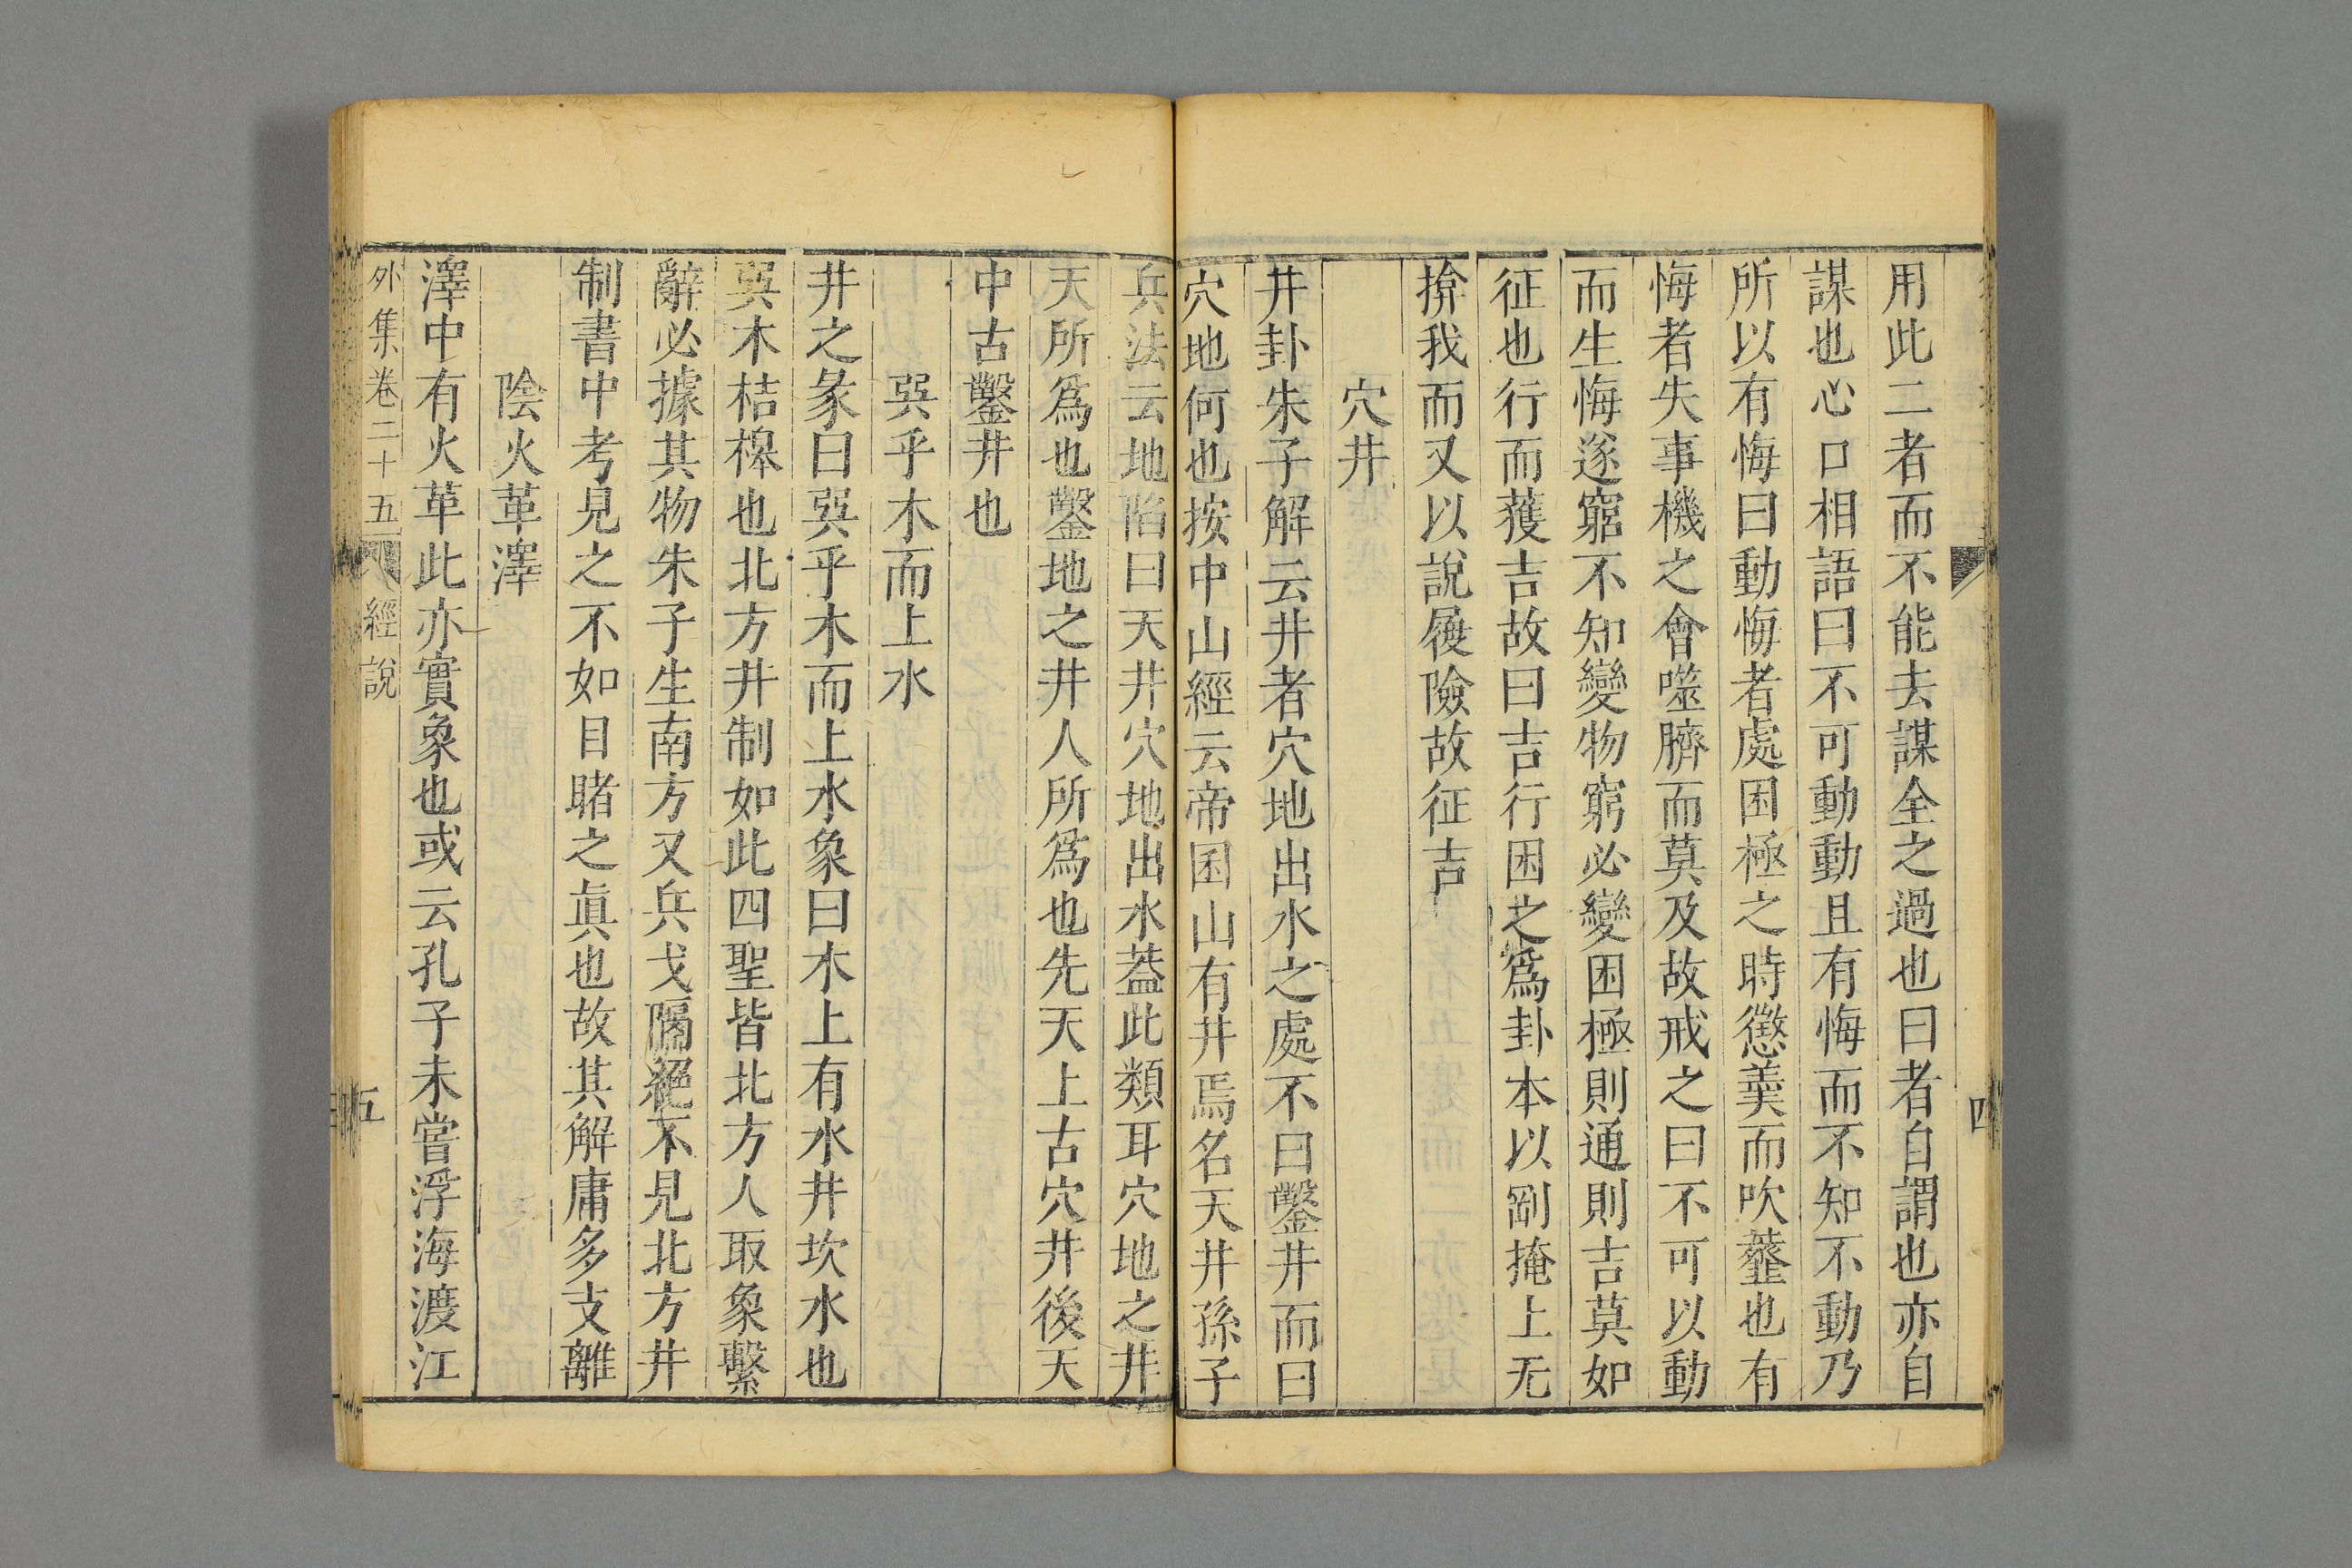 用此二者而不能去謀全之過也曰者自謂也亦自
謀也心口相語曰不可動動且有悔而不知不動乃
所以有悔曰動悔者處困極之時懲羮而吹虀也有
悔者失事機之會噬臍而莫及故戒之曰不可以動
而生悔遂窮不知變物窮必變困極則通則吉莫如
征也行而獲吉故曰吉行困之爲卦本以剛掩上无
揜我而又以說履險故征吉
穴井
井卦朱子解云井者穴地出水之處不曰鑿井而曰
穴地何也按中山經云帝囷山有井焉名天井孫子
兵法云地陷曰天井穴地出水葢此類耳穴地之井
天所爲也鑿地之井人所爲也先天上古穴井後天
中古鑿井也
巽乎木而上水
井之彖曰巽乎木而上水象曰木上有水井坎水也
巽木桔槔也北方井制如此四聖皆北方人取象繫
辭必據其物朱子生南方又兵戈隔絕不見北方井
制書中考見之不如目睹之眞也故其解庸多支離
陰火革澤
澤中有火革此亦實象也或云孔子未嘗浮海渡江
外集卷二十五 經說
五
四